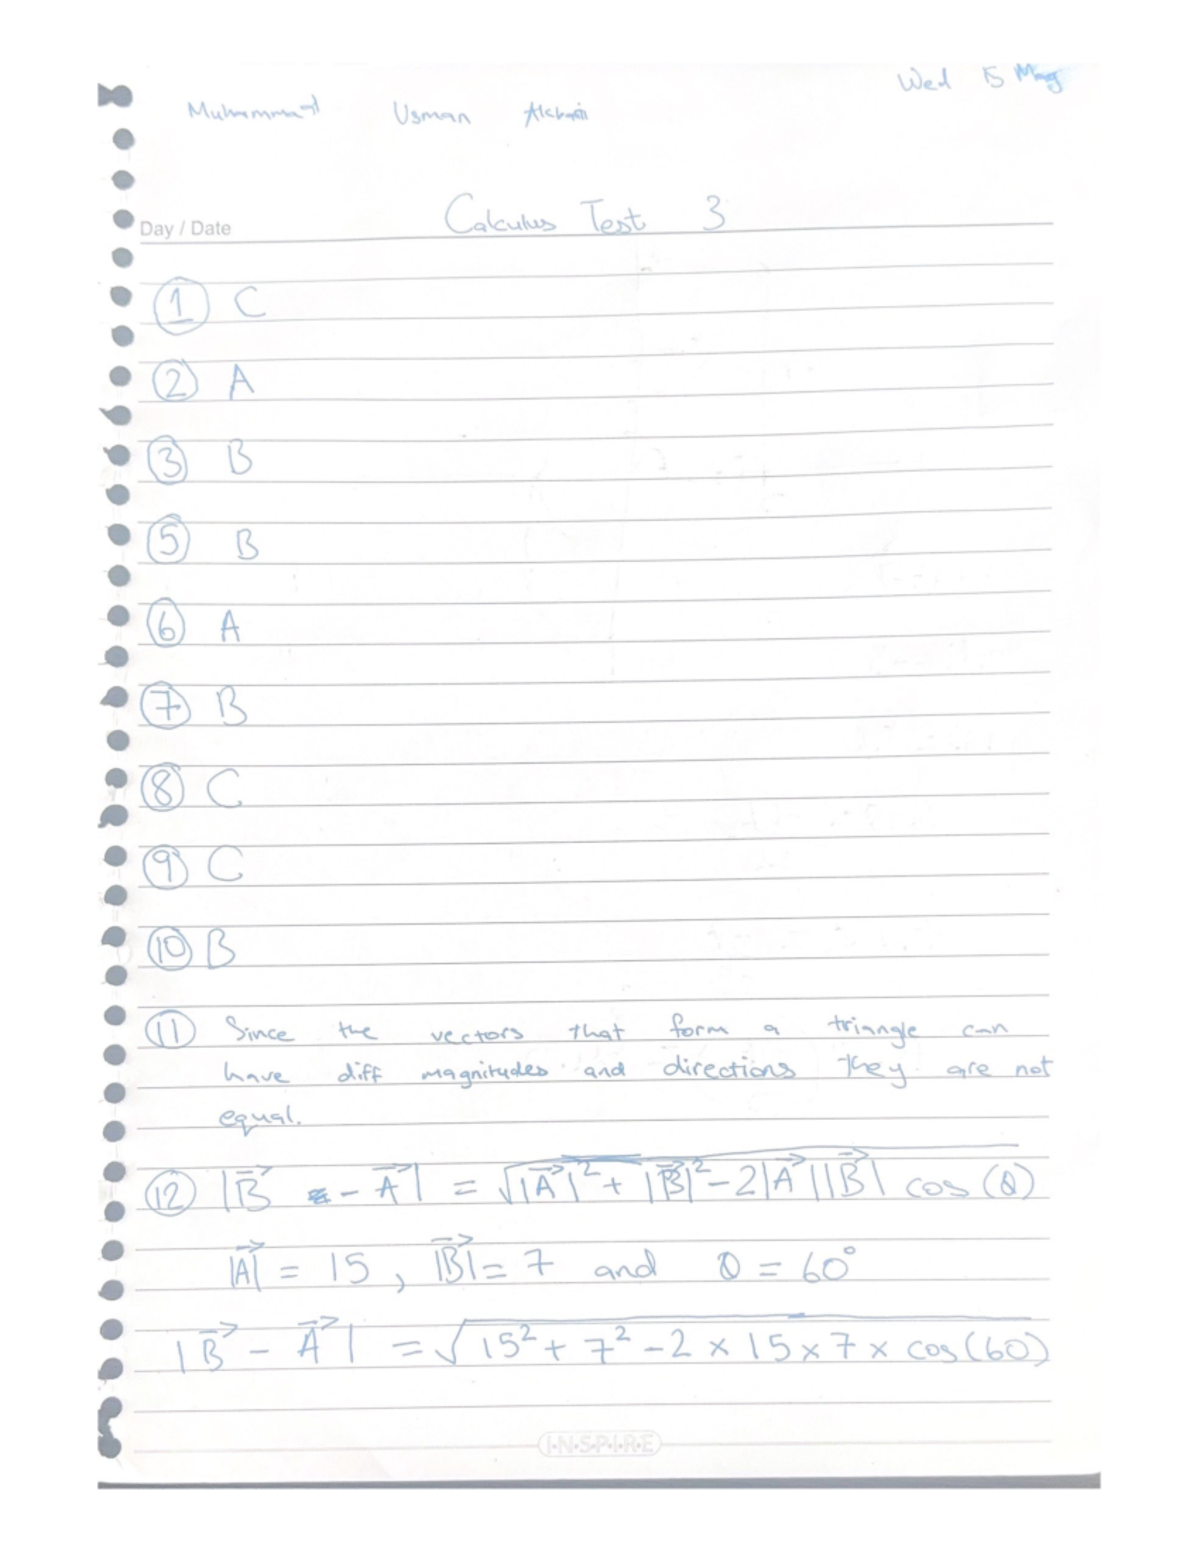 Wed 15 May
Muhammad Usman
Day / Date
Calculus Test 3
1 C
2 A
3 B
5 B
6 A
7 B
8 C
9 C
10 B
11 Since the vectors that form a triangle can
have diff magnitudes and directions they are not
equal.
12 |B⃗ - A⃗| = √|A⃗|² + |B⃗|² - 2|A⃗||B⃗| cos (θ)
|A⃗| = 15, |B⃗| = 7 and θ = 60°
|B⃗ - A⃗| = √15² + 7² - 2 × 15 × 7 × cos(60)
I·N·S·P·I·R·E